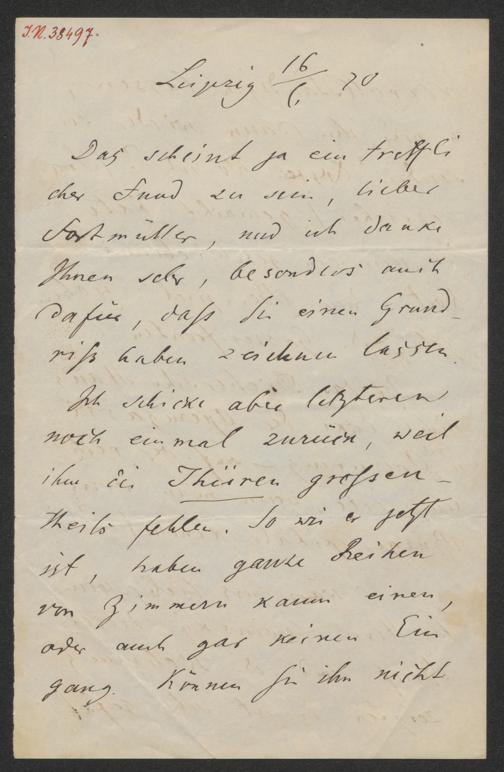 I.N. 38497.
Leipzig 16/6 70
Das scheint ja ein treffli
cher Fund zu sein, lieber
Fortmüller, und ich danke
Ihnen sehr, besonders auch
dafür, daß Sie einen Grund-
riß haben zeichnen lassen.
Ich schicke aber letzteren
noch einmal zurück, weil
ihm die Thüren grossen-
theils fehlen. So wie er jetzt
ist, haben ganze Reihen
von Zimmern kaum einen,
oder auch gar keinen Ein
gang. Können Sie ihn nicht